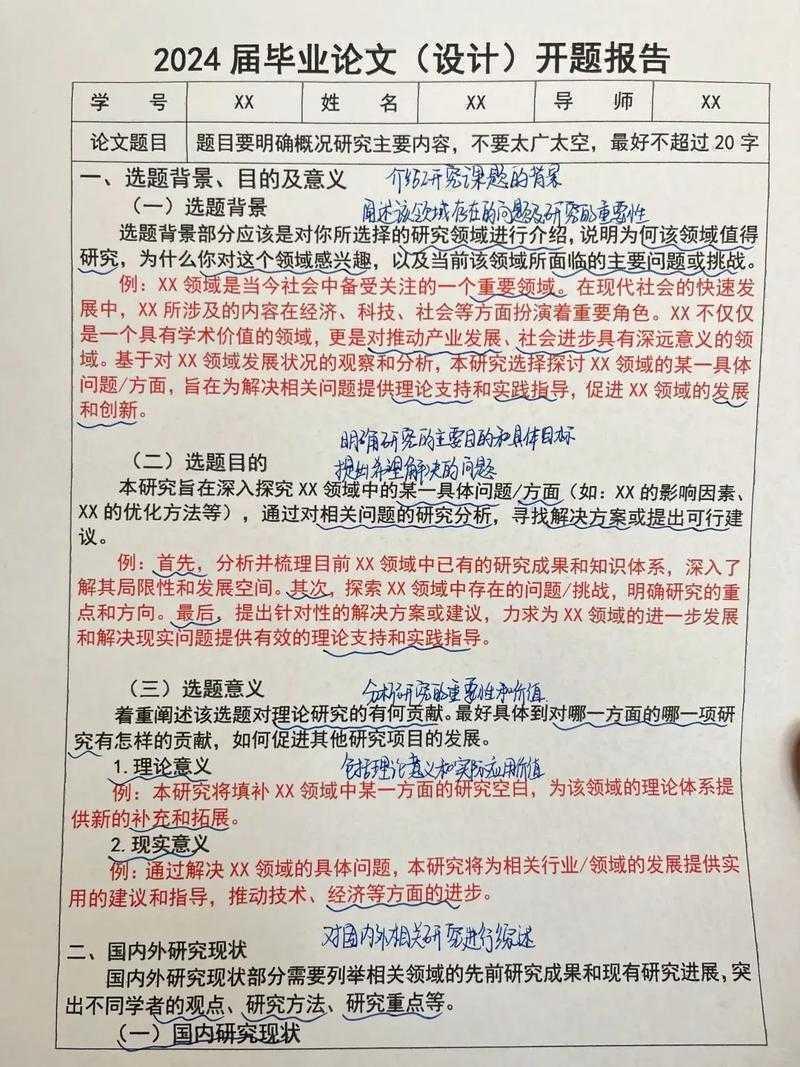 2024 届毕业论文（设计）开题报告
学 号 XX 姓 名 XX 导 师 XX
论文题目 题目要明确概况研究主要内容，不要太广太空，最好不超过 20 字
一、选题背景、目的及意义 介绍研究课题的背景
（一）选题背景 阐述该领域存在的问题及研究的重要性
选题背景部分应该是对你所选择的研究领域进行介绍，说明为何该领域值得
研究，为什么你对这个领域感兴趣，以及当前该领域所面临的主要问题或挑战。
例：XX 领域是当今社会中备受关注的一个重要领域。在现代社会的快速发
展中，XX 所涉及的内容在经济、科技、社会等方面扮演着重要角色。XX 不仅仅
是一个具有学术价值的领域，更是对推动产业发展、社会进步具有深远意义的领
域。基于对 XX 领域发展状况的观察和分析，本研究选择探讨 XX 领域的某一具体
问题/方面，旨在为解决相关问题提供理论支持和实践指导，促进 XX 领域的发展
和创新。
明确研究的主要目的和具体目标
（二）选题目的 提出希望解决的问题
本研究旨在深入探究 XX 领域中的某一具体问题/方面（如：XX 的影响因素、
XX 的优化方法等），通过对相关问题的研究分析，寻找解决方案或提出可行建
议。
例：首先，分析并梳理目前 XX 领域中已有的研究成果和知识体系，深入了
解其局限性和发展空间。其次，探索 XX 领域中存在的问题/挑战，明确研究的重
点和方向。最后，提出针对性的解决方案或建议，力求为 XX 领域的进一步发展
和解决现实问题提供有效的理论支持和实践指导。
（三）选题意义 分析研究的重要性和价值
着重阐述该选题对理论研究的有何贡献。最好具体到对哪一方面的哪一项研
究有怎样的贡献，如何促进其他研究项目的发展。
1.理论意义 包括理论意义和实际应用价值
例：本研究将填补 XX 领域中某一方面的研究空白，为该领域的理论体系提
供新的补充和拓展。
2.现实意义
例：通过解决 XX 领域的具体问题，本研究将为相关行业/领域的发展提供实
用的建议和指导，推动技术、经济等方面的进步。
二、国内外研究现状 对国内外相关研究进行综述
国内外研究现状部分需要列举相关领域的先前研究成果和现有研究进展，突
出不同学者的观点、研究方法、研究重点等。
（一）国内研究现状